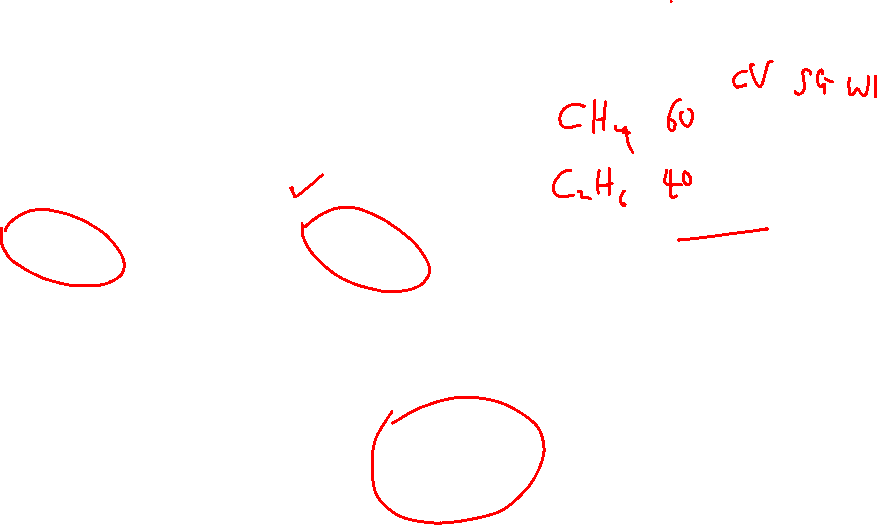 CV SG WI
CH₄ 60
C₂H₆ 40